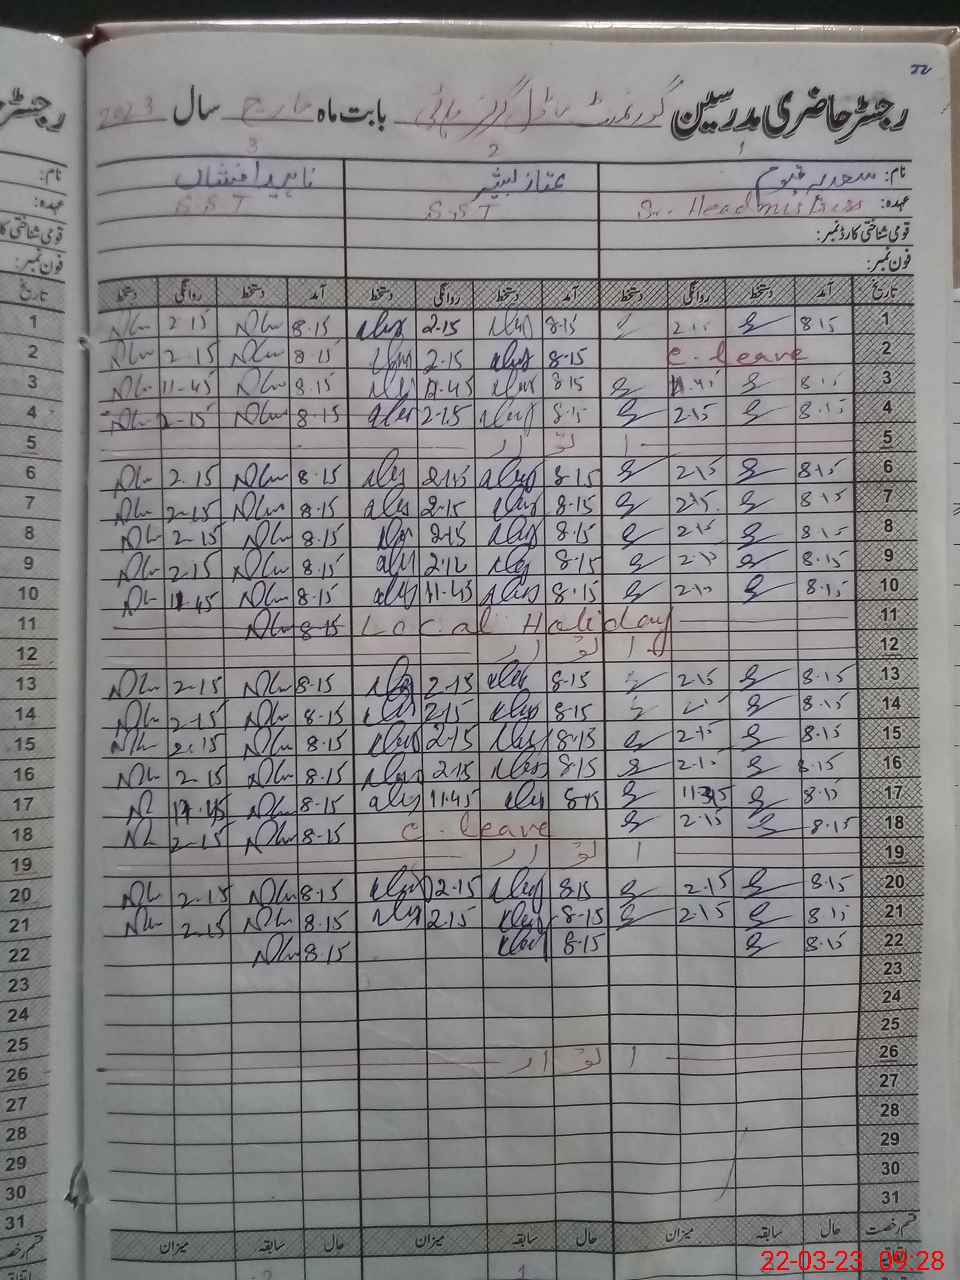 22
رجسٹر حاضری مدرسین گورنمنٹ ماڈل گرلز ہائی بابت ماہ مارچ سال 2023
1 2 3
نام: سعدیہ قیوم ممتاز بشیر ناہید افشاں
عہدہ: Sr. Headmistress S.S.T S.S.T
قومی شناختی کارڈ نمبر:
فون نمبر:
تاریخ آمد دستخط روانگی دستخط آمد دستخط روانگی دستخط آمد دستخط روانگی دستخط
1 8.15 2.15 8.15 2.15 8.15 2.15
2 c. leave 8.15 2.15 8.15 2.15
3 8.15 11.45 8.15 11.45 8.15 11.45
4 8.15 2.15 8.15 2.15 8.15 2.15
5 اتوار
6 8.15 2.15 8.15 2.15 8.15 2.15
7 8.15 2.15 8.15 2.15 8.15 2.15
8 8.15 2.15 8.15 2.15 8.15 2.15
9 8.15 2.15 8.15 2.12 8.15 2.15
10 8.15 8.15 11.45 8.15 11.45
11 Local Holiday 8.15
12 اتوار
13 8.15 2.15 8.15 2.15 8.15 2.15
14 8.15 8.15 2.15 8.15 2.15
15 8.15 2.15 8.15 2.15 8.15 2.15
16 8.15 2.15 8.15 2.15 8.15 2.15
17 8.15 8.15 11.45 8.15 11.45
18 8.15 2.15 c. leave 8.15 2.15
19 اتوار
20 8.15 2.15 8.15 2.15 8.15 2.15
21 8.15 2.15 8.15 2.15 8.15 2.15
22 8.15 8.15 8.15
23
24
25
26 اتوار
27
28
29
30
31
قسم رخصت حال سابقہ میزان حال سابقہ میزان حال سابقہ میزان
22-03-23 09:28